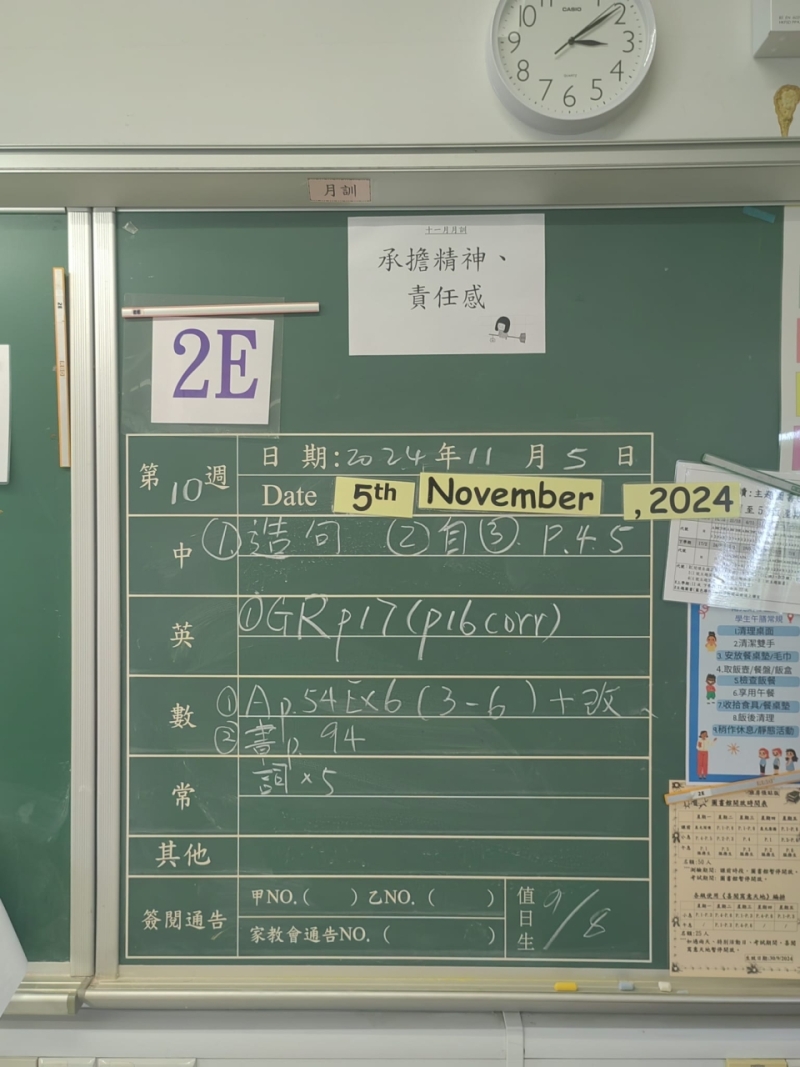 CASIO
10 2
9 3
8 4
7 6 5
QUARTZ
月訓
十一月月訓
承擔精神、
責任感
2E
第10週
日期:2024年11月5日
Date 5th November, 2024
中
①造句 ②自③ P.4.5
英
①GR p17 (p16 corr)
數
①A p.54 Ex6 (3-6) + 改
②書p. 94
常
詞×5
其他
簽閱通告
甲NO.( ) 乙NO.( )
家教會通告NO.( )
值日生
9/8
學生午膳常規
1.清理桌面
2.清潔雙手
3.安放餐桌墊/毛巾
4.取飯壺/餐盤/飯盒
5.檢查飯餐
6.享用午餐
7.收拾食具/餐桌墊
8.飯後清理
9.稍作休息/靜態活動
圖書館開放時間表
星期一 星期二 星期三 星期四 星期五